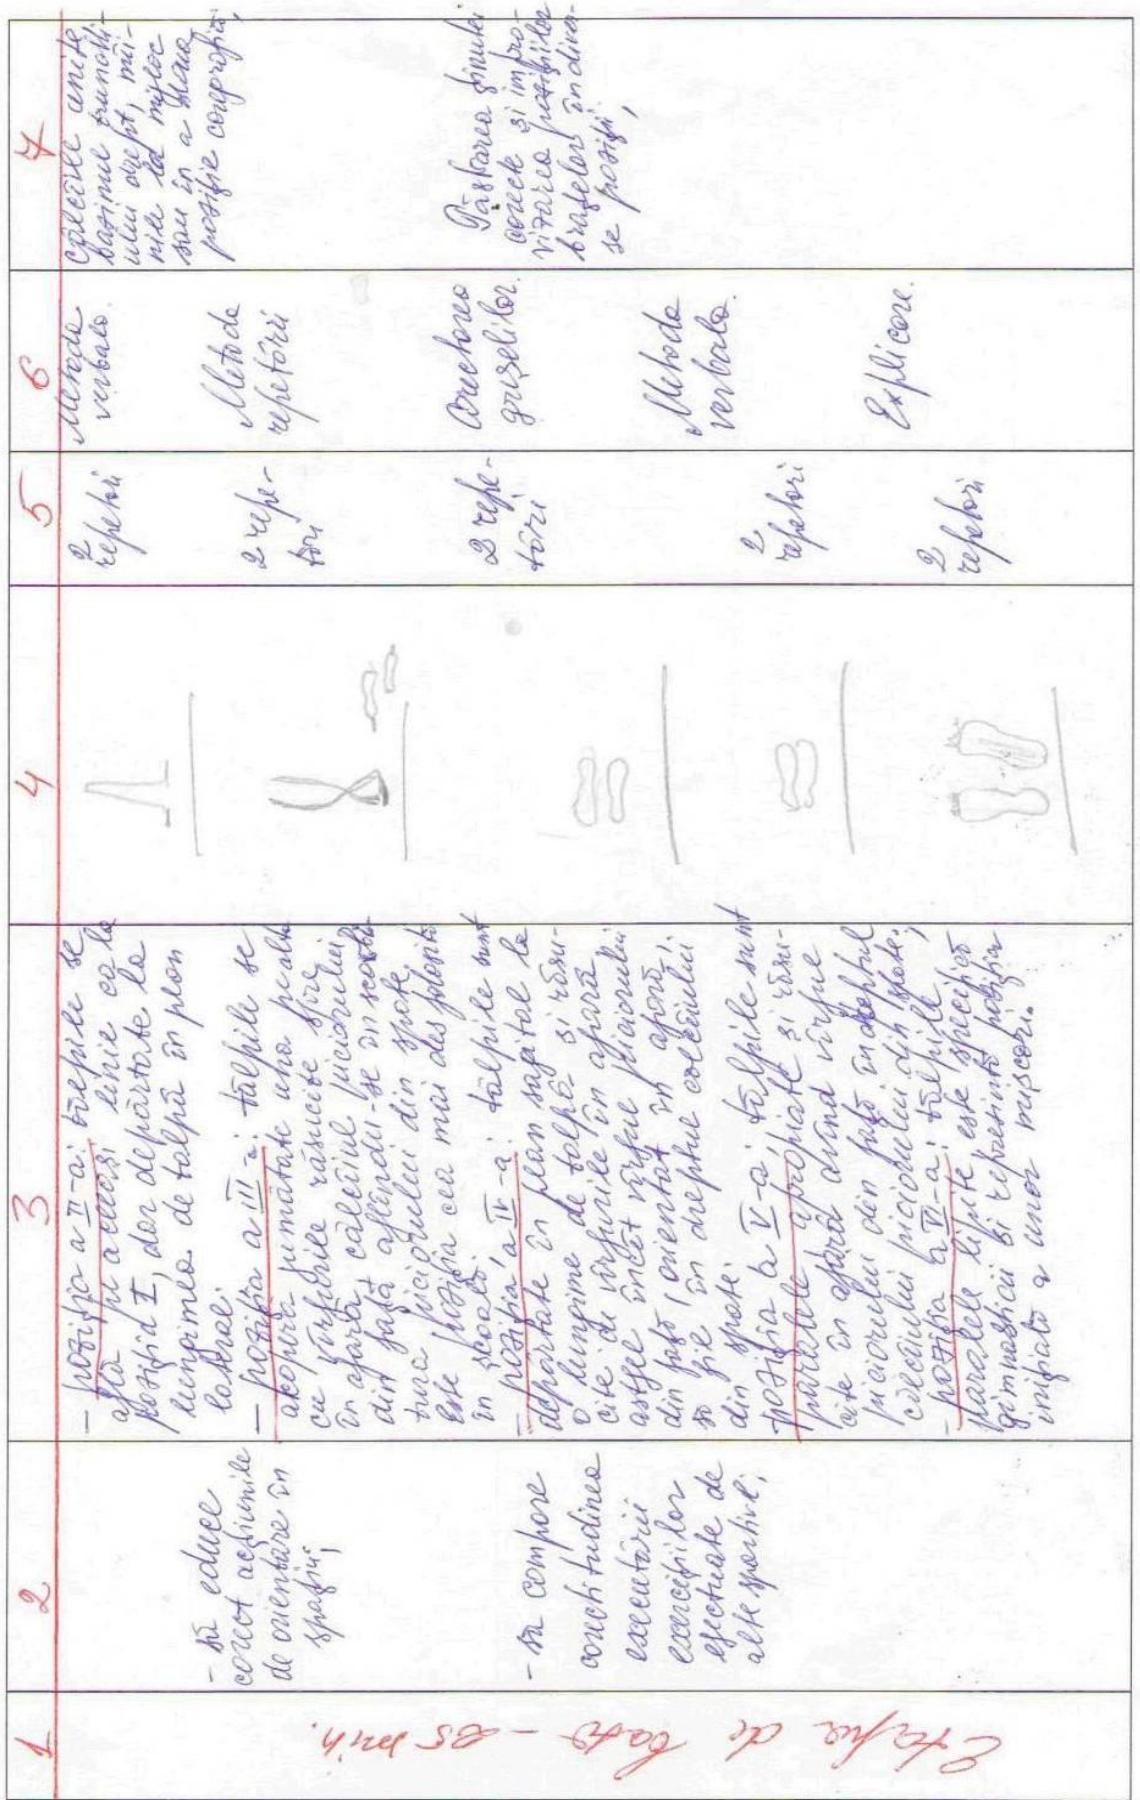 1
2
3
4
5
6
7
Etapa de bază - 25 min.
- să educe
corect acțiunile
de orientare în
spațiu;
- să compare
corectitudinea
executării
exercițiilor
efectuate de
alte sportive;
- poziția a II-a: tălpile se
află pe aceeași linie ca la
poziția I, dar depărtate la
lungimea de talpă în plan
lateral.
- poziția a III-a: tălpile se
acoperă jumătate una pe alta
cu vîrfurile răsucite spre
în afară călcîiul piciorului
din față aflîndu-se în scobi-
tura piciorului din spate
este poziția cea mai des folosită
în școală.
- poziția a IV-a: tălpile sunt
depărtate în plan sagital la
o lungime de talpă și răsu-
cite cu vîrfurile în afară
astfel încât vîrful piciorului
din față (orientat în afară)
să fie în dreptul călcîiului
din spate.
poziția a V-a: tălpile sunt
paralele apropiate și răsu-
cite în afară avînd vîrful
piciorului din față în dreptul
călcîiului piciorului din spate;
- poziția a VI-a: tălpile
paralele lipite este specifică
gimnasticii și reprezintă poziția
inițială a unor mișcări.
2
repetări
2 repe-
tări
2 repe-
tări
2
repetări
2
repetări
Metoda
verbala.
Metoda
repetării
Corectarea
greșelilor.
Metoda
verbala.
Explicare.
Călcîile unite
bazinul trunchi-
ului drept, mîi-
nile la mijloc
sau în a
poziție
Păstrarea ținutei
corecte și impro-
vizarea pozițiilor
brațelor în diver-
se poziții,